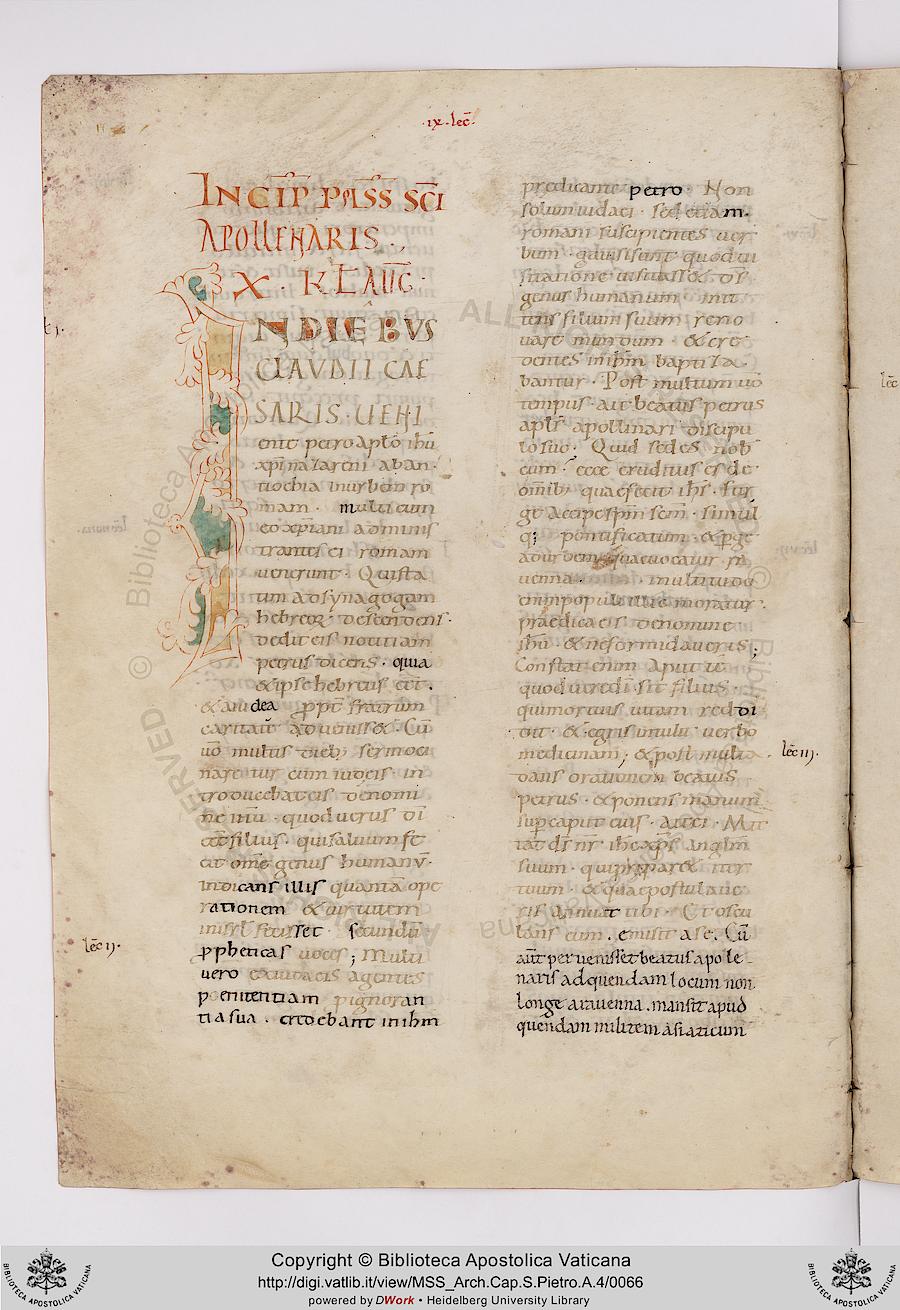 ·ix·lec̄·
INCIP̄ PASS̄ SC̄I
APOLLENARIS·,
X · KL AUG̅·
INDIEBUS
CLAUDII CAE
SARIS· UEHI
enit petro aplō ihū
xp̄i nazareni aban·
tiochia inurbem ro
mam· multi cum
eo xpiani adminis
trantes ei romam
uenerunt· Qui sta
tum ad synagogam
hebreorum descendens·
dedit eis notitiam
petrus dicens· quia
& ipse hebreus eēt·
& a iudea ꝓpt fratrum
caritatē aduenisset· Cū
uō multis dieb; sermoci
naretur cum iudeis· in
troducebat eis denomi
ne ihū· quod uerus dī
eēt filius· qui saluum fe
cit om̄e genus humanū·
indicans illis quantā ope
rationem & uirtutem
in isrl fecisset· secundū
ꝓpheticas uoces; Multi
lec̄ ij·
vero ex iudaeis agentes
poenitentiam pignoran
tia sua· credebant inihm
predicante petro· Non
solum iudaei· sed etiam·
romani suscipientes uer
bum· gauisi sunt quod ui
sitatione uisitasset dī
genus humanum· mit
tens filium suum reno
uare mundum· & cre
dentes inihm baptiza
bantur· Post multum uō
tempus· ait beatus petrus
apls apollinari discipu
lo suo; Quid sedes nob
cum? ecce eruditus es de
omīb; quae fecit ihs· sur
ge accipe spm̄ scm̄· simul
q; pontificatum· & perge
ad urbem quae uocatur ra
uenna· multitudo
enim populi illic moratur·
praedica eis denomine
ihū· & ne formidaueris;
Constat enim aput te
quod uere dī sit filius·
qui mortuis uitam reddi
dit· & egris multis uerbo
lec̄ iij·
medicinam; & post multa
dans orationem beatus
petrus· & ponens manum
sup caput eius· ait ei· Mit
tat dn̄s nr̄ ihc xp̄s anglm̄
suum· qui preparet iter
tuum· & quae postulaue
ris annuat tibi· Et oscu
lans eum· emisit a se· Cū
aūt peruenisset beatus apole-
naris ad quendam locum non
longe a rauenna· mansit apud
quendam militem asiaticum
Copyright © Biblioteca Apostolica Vaticana
http://digi.vatlib.it/view/MSS_Arch.Cap.S.Pietro.A.4/0066
powered by DWork • Heidelberg University Library
BIBLIOTECA APOSTOLICA VATICANA
BIBLIOTECA APOSTOLICA VATICANA